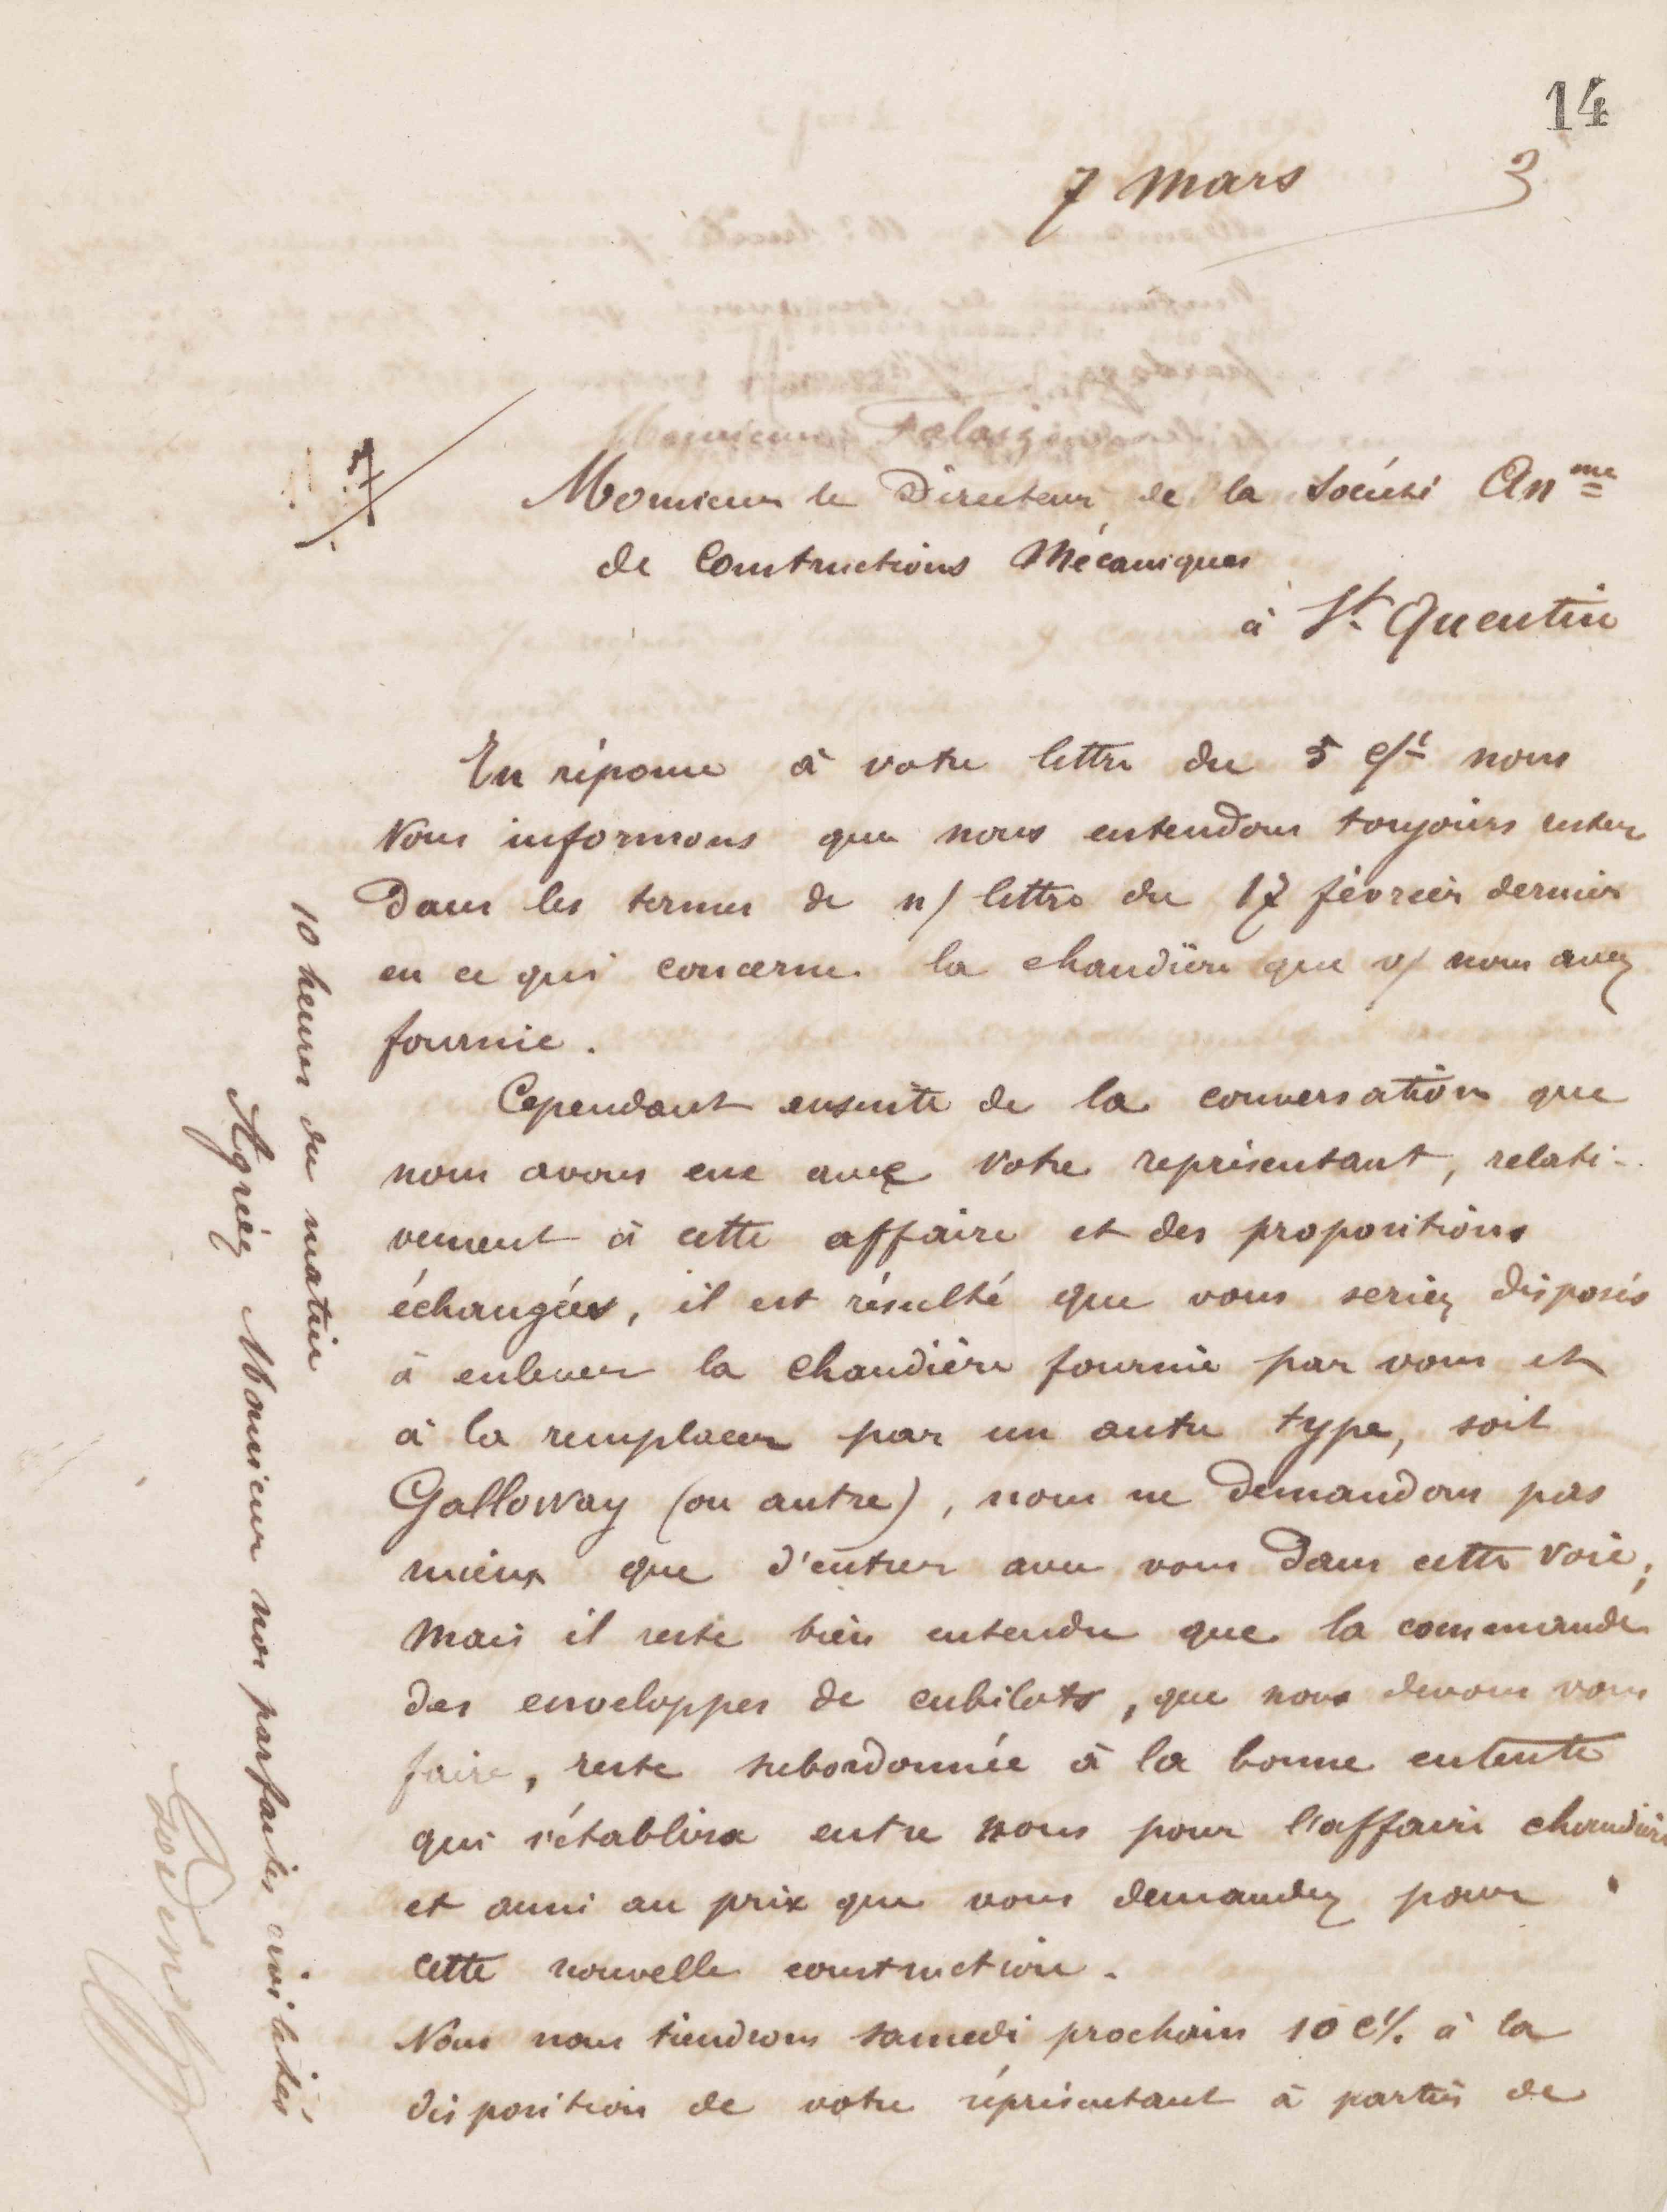 14
7 Mars 3
Monsieur le Directeur de la Société An^me
de Constructions Mécaniques
à S^t. Quentin
En réponse à votre lettre du 5 c/t nous
vous informons que nous entendons toujours rester
dans les termes de n/ lettre du 17 février dernier
en ce qui concerne la chaudière que v/ nous avez
fournie.
Cependant ensuite de la conversation que
nous avons eue avec votre représentant, relati-
vement à cette affaire et des propositions
échangées, il est résulté que vous seriez disposés
à enlever la chaudière fournie par vous et
à la remplacer par un autre type, soit
Galloway (ou autre), nous ne demandons pas
mieux que d'entrer avec vous dans cette voie;
mais il reste bien entendu que la commande
des enveloppes de cubilots, que nous devons vous
faire, reste subordonnée à la bonne entente
qui s'établira entre nous pour l'affaire chaudière
et aussi au prix que vous demandez pour
cette nouvelle construction.
Nous nous tiendrons samedi prochain 10 c/. à la
disposition de votre représentant à partir de
10 heures du matin
Agréez Monsieur nos parfaites civilités
Godin